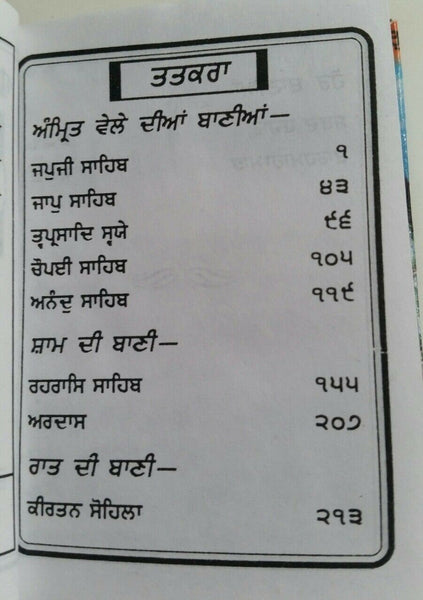 ਤਤਕਰਾ
ਅੰਮ੍ਰਿਤ ਵੇਲੇ ਦੀਆਂ ਬਾਣੀਆਂ—
ਜਪੁਜੀ ਸਾਹਿਬ ੧
ਜਾਪੁ ਸਾਹਿਬ ੪੩
ਤ੍ਵਪ੍ਰਸਾਦਿ ਸ੍ਵਯੇ ੯੬
ਚੌਪਈ ਸਾਹਿਬ ੧੦੫
ਅਨੰਦੁ ਸਾਹਿਬ ੧੧੯
ਸ਼ਾਮ ਦੀ ਬਾਣੀ—
ਰਹਰਾਸਿ ਸਾਹਿਬ ੧੫੫
ਅਰਦਾਸ ੨੦੭
ਰਾਤ ਦੀ ਬਾਣੀ—
ਕੀਰਤਨ ਸੋਹਿਲਾ ੨੧੩